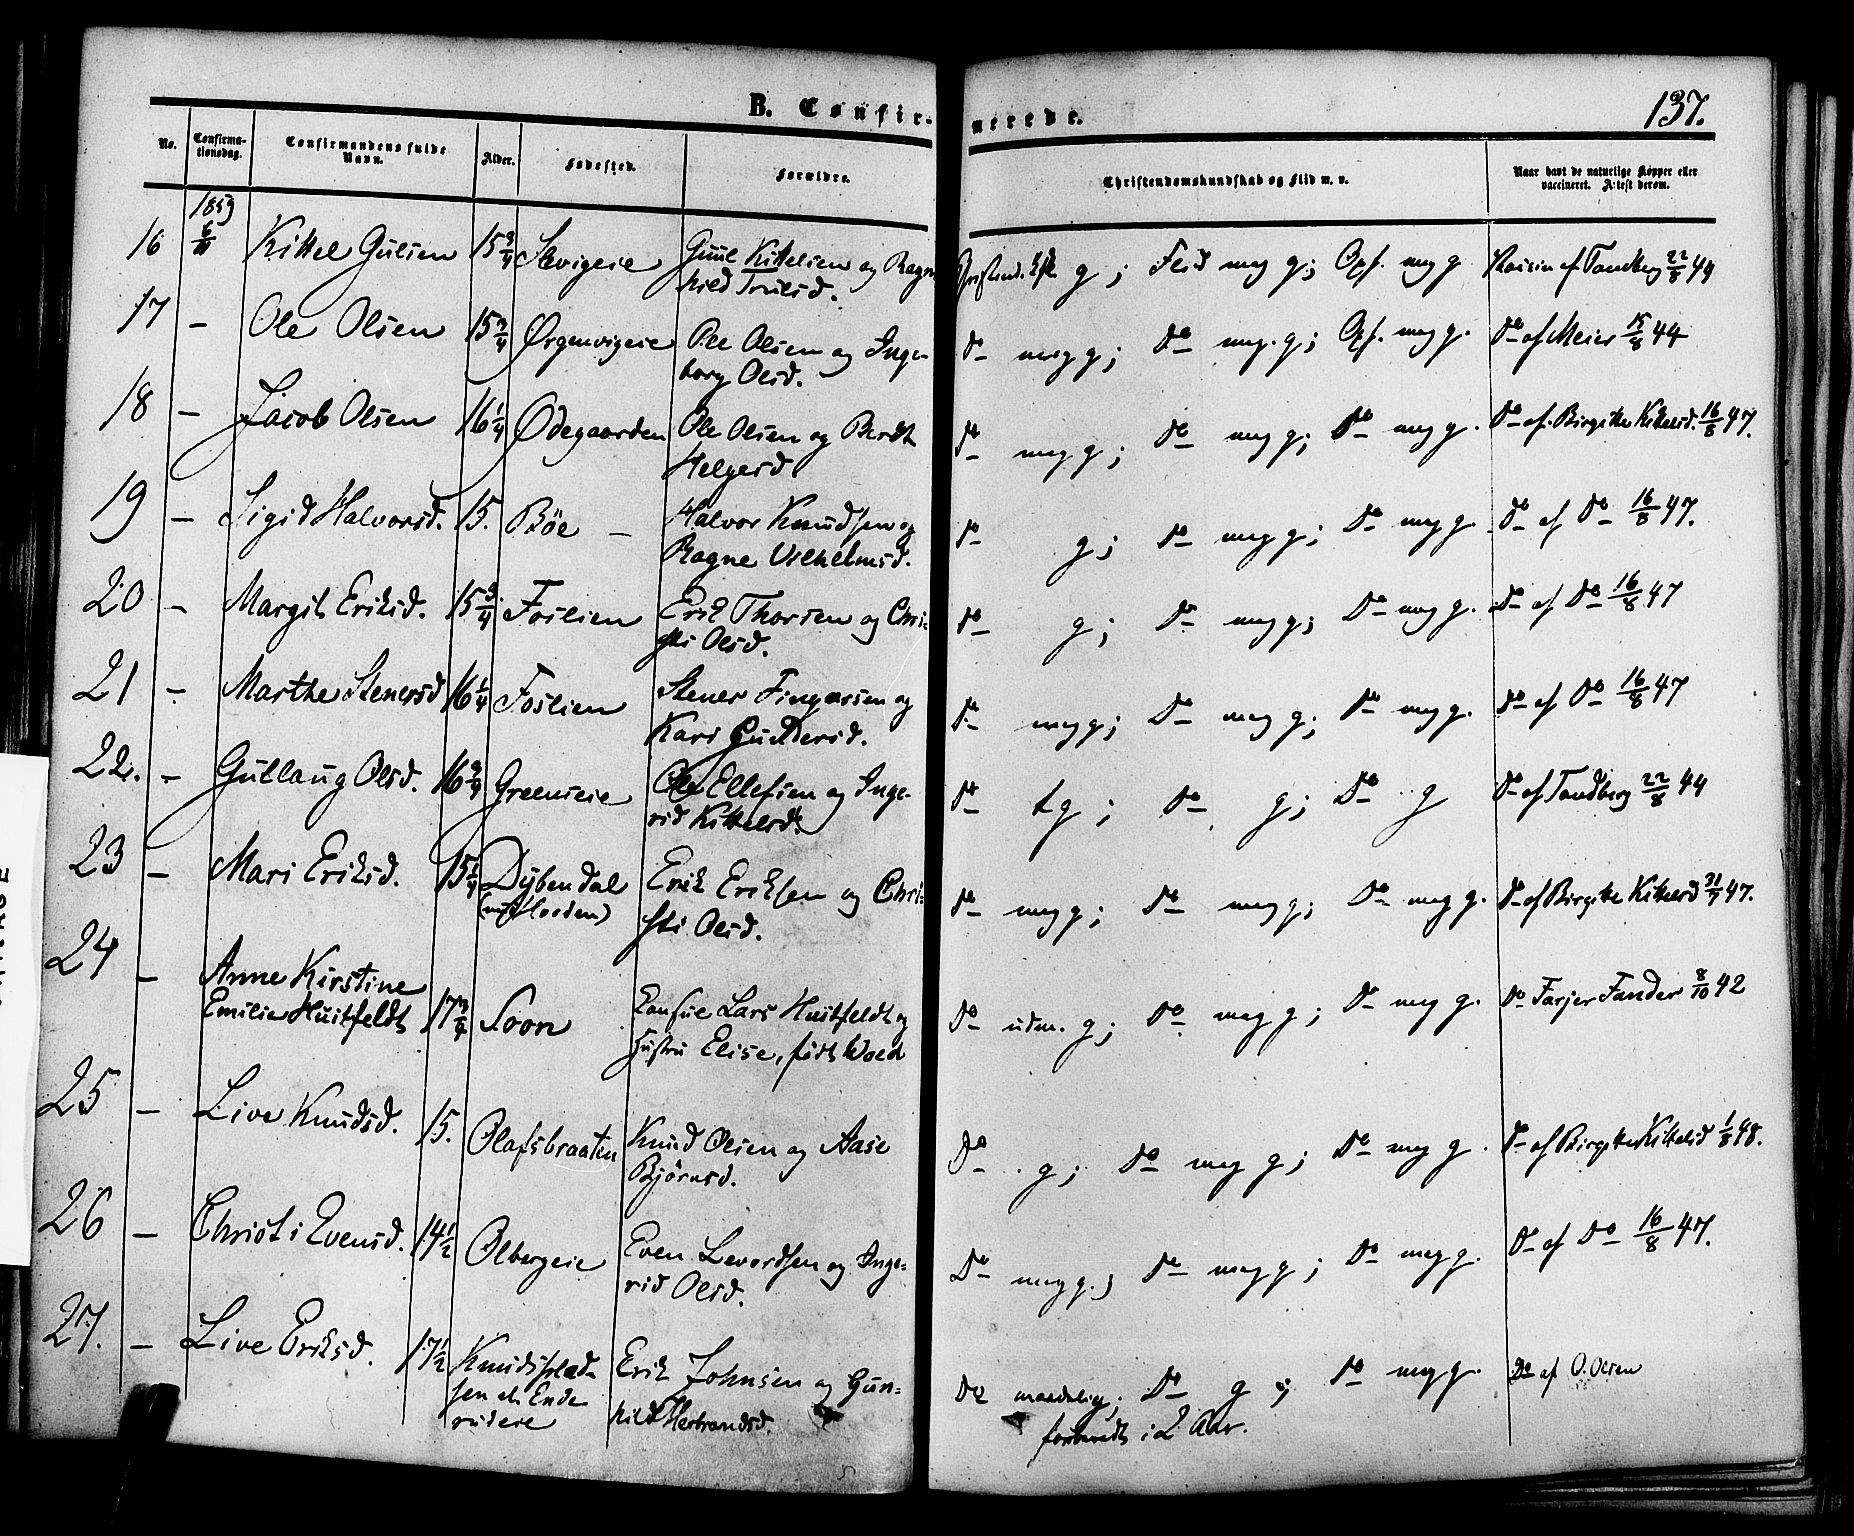 B. Confirmerede.
137.
No. Confirmationsdag. Confirmandens fulde Navn. Alder. Fødested. Forældre. Christendomskundskab og Flid m. v. Naar havt de naturlige Kopper eller vaccineret. Attest derom.
1859
16 6/11 Kittel Gulsen 15 3/4 Skvigeie Guul Kittelsen og Ragnhild Trulsd. g; Flid meg g; Opf. meg g Vaccin af Tandberg 22/8 44
17 — Ole Olsen 15 3/4 Ørgenvigeie Ole Olsen og Ingeborg Olsd. Do meg g; Do meg g; Opf. meg g. Do af Meier 15/8 44
18 — Jacob Olsen 16 1/4 Ødegaarden Ole Olsen og Berit Helgesd Do meg g; Do meg g; Do meg g. Do af Birgitte Kittelsd. 16/8 47.
19 — Sigid Halvorsd. 15. Böe — Halvor Knudsen og Ragne Vilhelmsd. Do g; Do meg g; Do meg g. Do af Do 16/8 47.
20 — Margit Eriksd. 15 3/4 Foslien Erik Thorsen og Christi Olsd. Do g; Do meg g; Do meg g. Do af Do 16/8 47
21 — Marthe Stenersd 16 1/4 Foslien Stener Fingarsen og Kari Gudersd. Do meg g; Do meg g; Do meg g. Do af Do 16/8 47
22. — Gullaug Olsd. 16 3/4 Greenseie Ole Ellefsen og Ingerid Kittelsd. Do tg; Do g; Do g Do af Tandberg 22/8 44
23 — Mari Eriksd. 15 1/4 Dybendal Erik Eriksen og Christi Olsd. Do meg g; Do meg g; Do meg g. Do af Birgitte Kittelsd 31/7 47.
24 — Anne Kirstine Emilie Huitfeldt 17 3/4 Soon Lars Huitfeldt og Hustru Elise, født Wold Do udm. g; Do meg g; Do meg g. Do 8/10 42
25 — Live Knudsd. 15. Olafsbraaten Knud Olsen og Aase Björnsd. Do g; Do meg g; Do meg g. Do af Birgitte Kittelsd 1/8 48.
26 — Christi Evensd. 14 1/2 Olbergeie Even Levordsen og Ingerid Olsd. Do meg g.; Do meg g; Do meg g. Do af Do 16/8 47.
27. — Live Eriksd. 17 1/2 Knudspladsen et. Enderudeie Erik Johnsen og Gunhild Herbrandsd. Do maadelig; Do g; Do meg g. Do af O. Olsen
forberedt i 2 Aar.